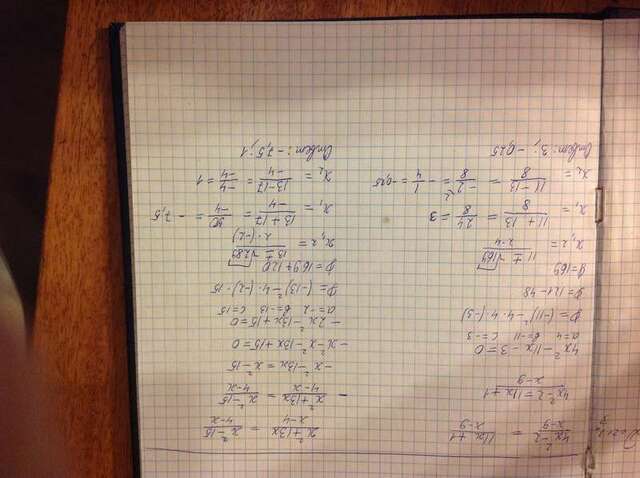 (4x²-2)/(x-9) = (11x+1)/(x-9)
(4x²-2=11x+1)/(x-9)
4x²-11x-3=0
a=4 в=-11 с=-3
D=(-11)²-4·4·(-3)
D=121-48
D=169
x₁,₂=(11±√169)/(2·4)
x₁=(11+13)/8=24/8=3
x₂=(11-13)/8=-2/8=-1/4=-0,25
Ответ: 3; -0,25
(x²+13x)/(x-4)=(x²-15)/(4-x)
-(x²+13x)/(4-x)=(x²-15)/(4-x)
-x²-13x=x²-15
-x²-x²-13x+15=0
-2x²-13x+15=0
a=-2 в=-13 с=15
D=(-13)²-4·(-2)·15
D=169+120
x₁,₂=(13±√289)/(2·(-2))
x₁=(13+17)/-4=30/-4=-7,5
x₂=(13-17)/-4=-4/-4=1
Ответ: -7,5; 1